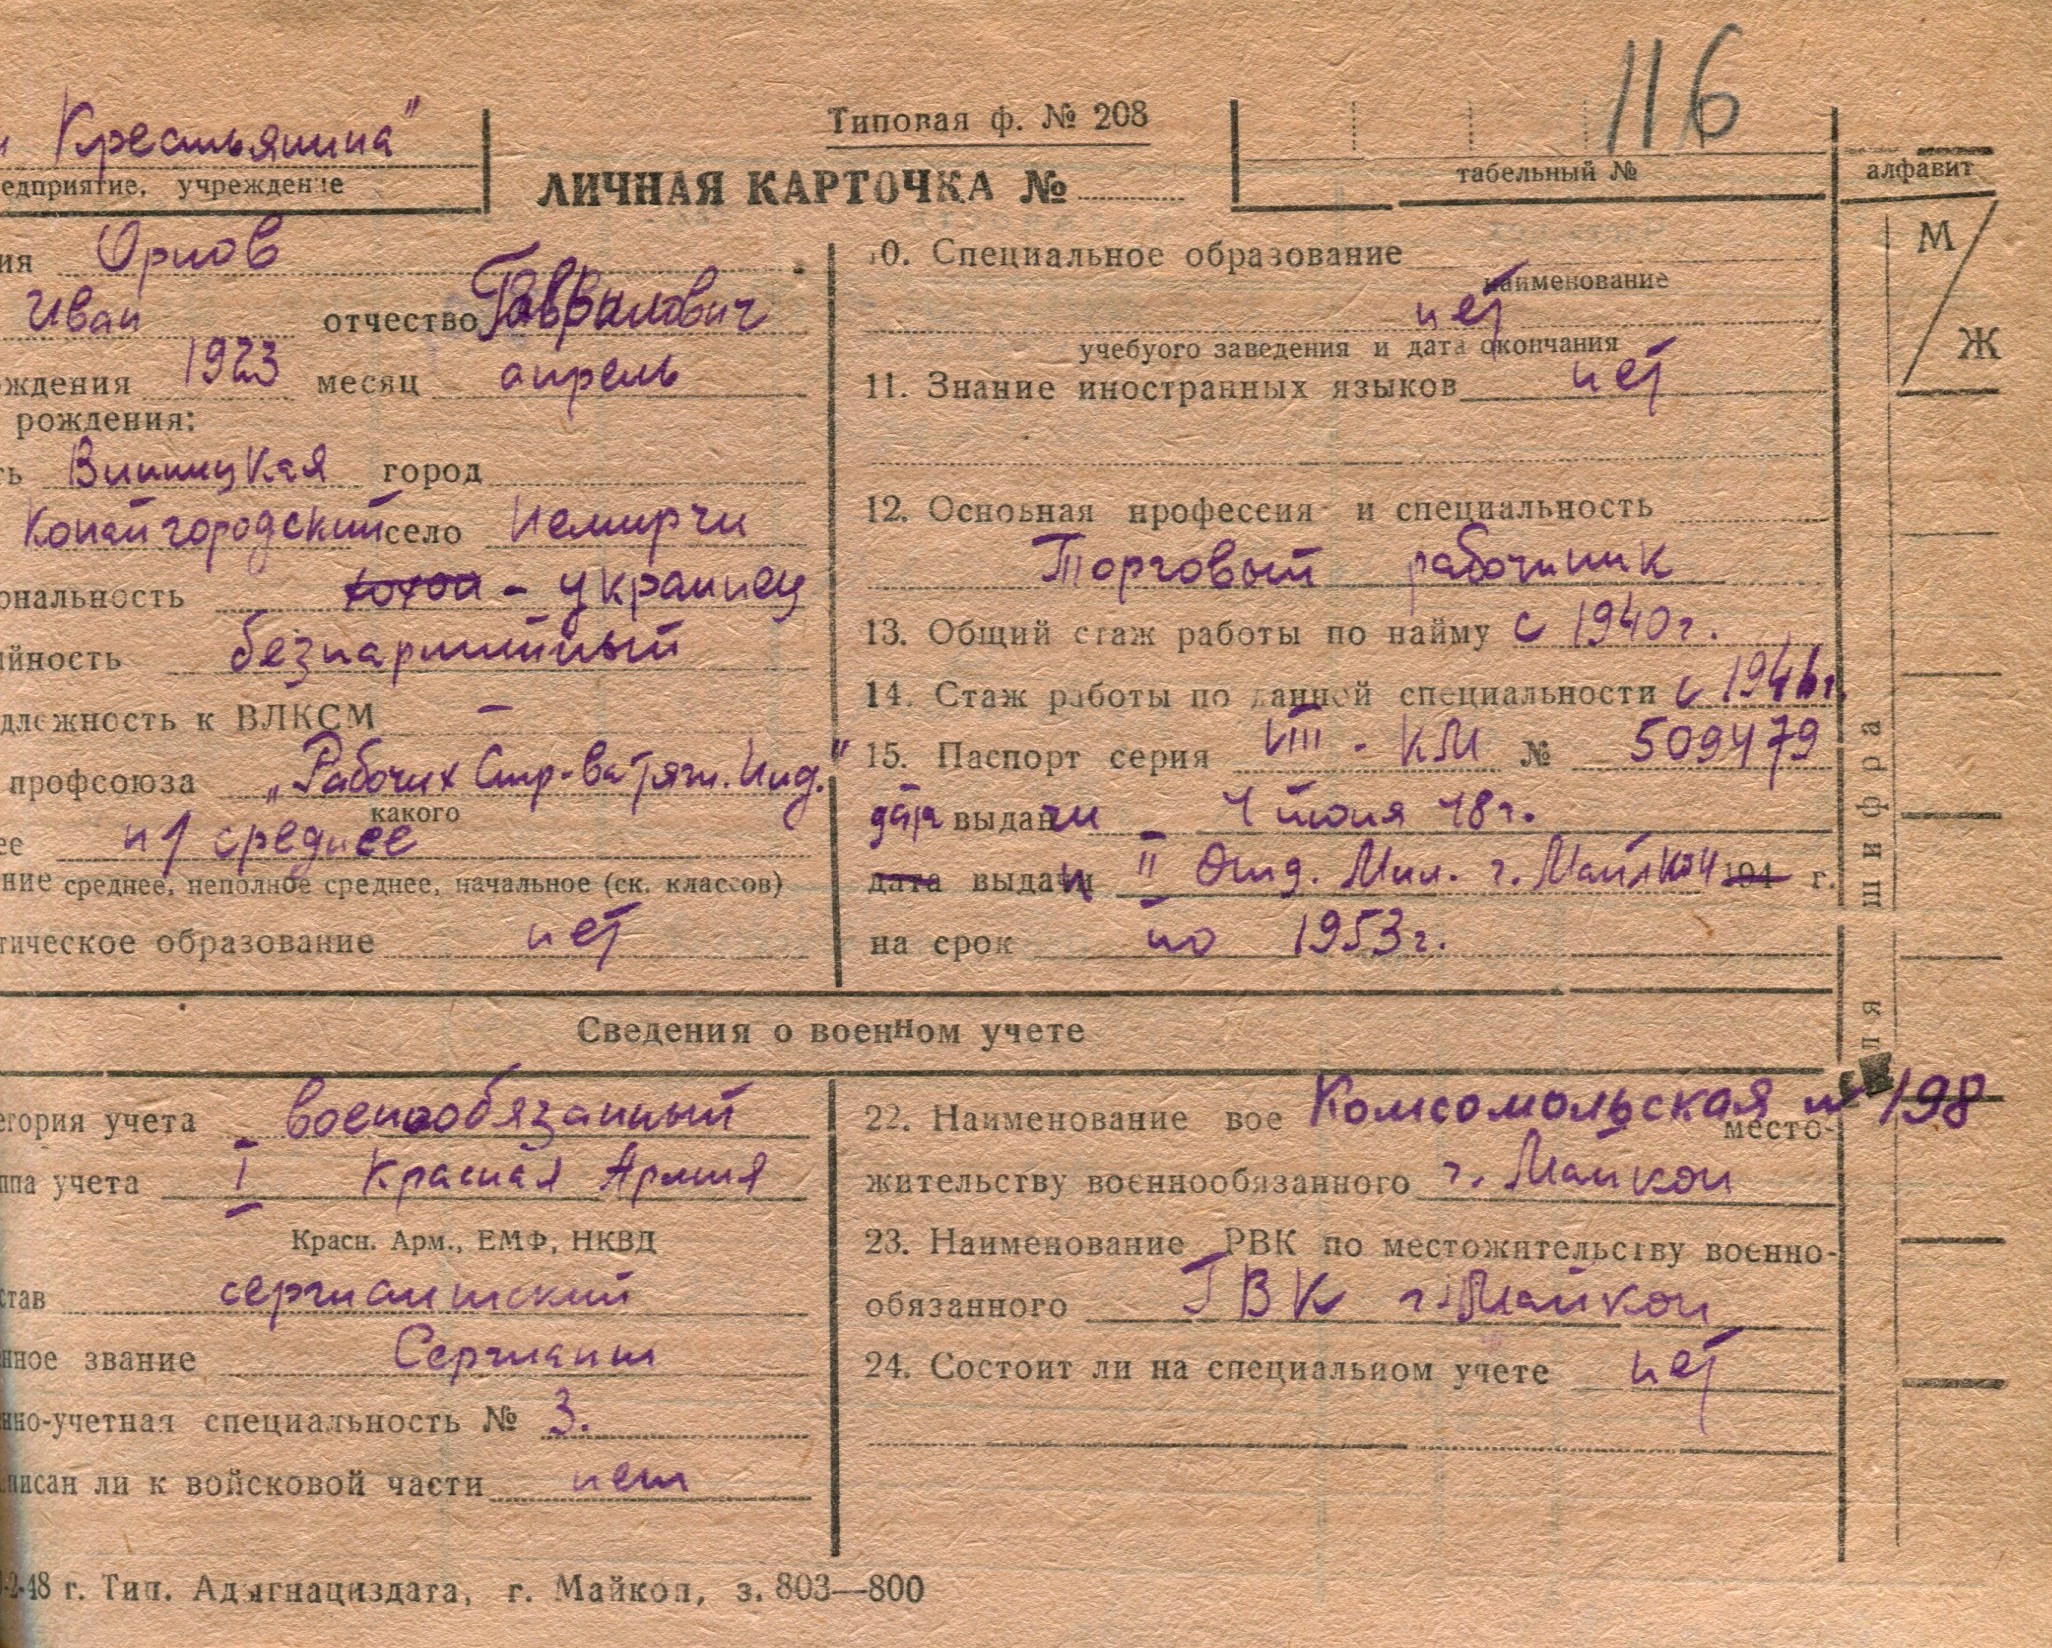 116
и Крестьянина"
Типовая ф. № 208
едприятие, учреждение
ЛИЧНАЯ КАРТОЧКА №
табельный №
алфавит
М
Ж
ия Орлов
Иван отчество Гаврилович
ождения 1923 месяц апрель
рождения:
ь Винницкая город
Копайгородский село Немирчи
ональность хохол - украинец
ийность безпартийный
длежность к ВЛКСМ —
профсоюза „Рабочих Стр-ва тяж. Инд."
какого
ее н/среднее
ние среднее, неполное среднее, начальное (ск. классов)
тическое образование нет
10. Специальное образование
наименование
нет
учебуого заведения и дата окончания
11. Знание иностранных языков нет
12. Основная профессия и специальность
Торговый работник
13. Общий стаж работы по найму с 1940г.
14. Стаж работы по данной специальности с 1946г.
15. Паспорт серия VIII - КМ № 509479
дата выдачи 1 июня 48г.
дата выдан II Отд. Мил. г. Майкоп 194 г.
на срок по 1953г.
ля шифра
Сведения о военном учете
егория учета военнообязанный
ппа учета I Красная Армия
Красн. Арм., ЕМФ, НКВД
став сержантский
нное звание Сержант
нно-учетная специальность № 3.
писан ли к войсковой части нет
22. Наименование вое Комсомольская 198
место-
жительству военнообязанного г. Майкоп
23. Наименование РВК по местожительству военно-
обязанного ГВК г. Майкоп
24. Состоит ли на специальном учете нет
-2-48 г. Тип. Адыгнациздата, г. Майкоп, з. 803—800